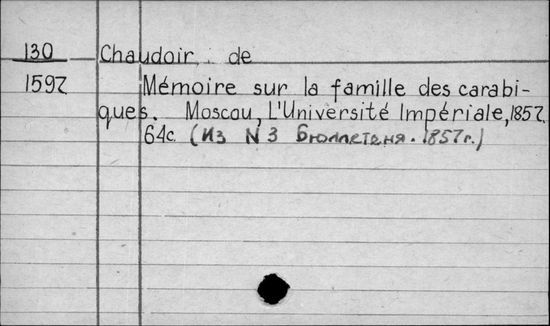 130 Chaudoir, de
1597 Mémoire sur la famille des carabi-
ques. Moscou, L'Université Impériale, 1857.
64c. (Из N 3 Бюллетеня. 1857г.)